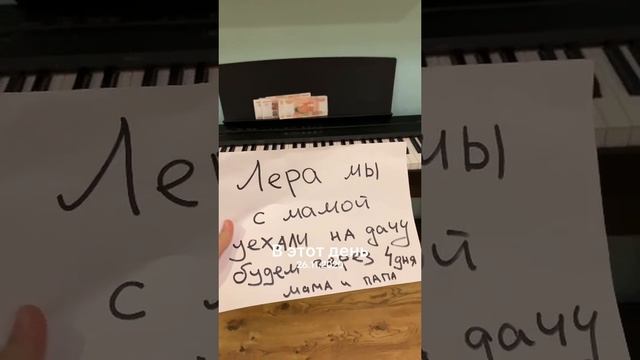 Лера мы
с мамой
уехали на дачу
В этот день
будем через 4 дня
мама и папа